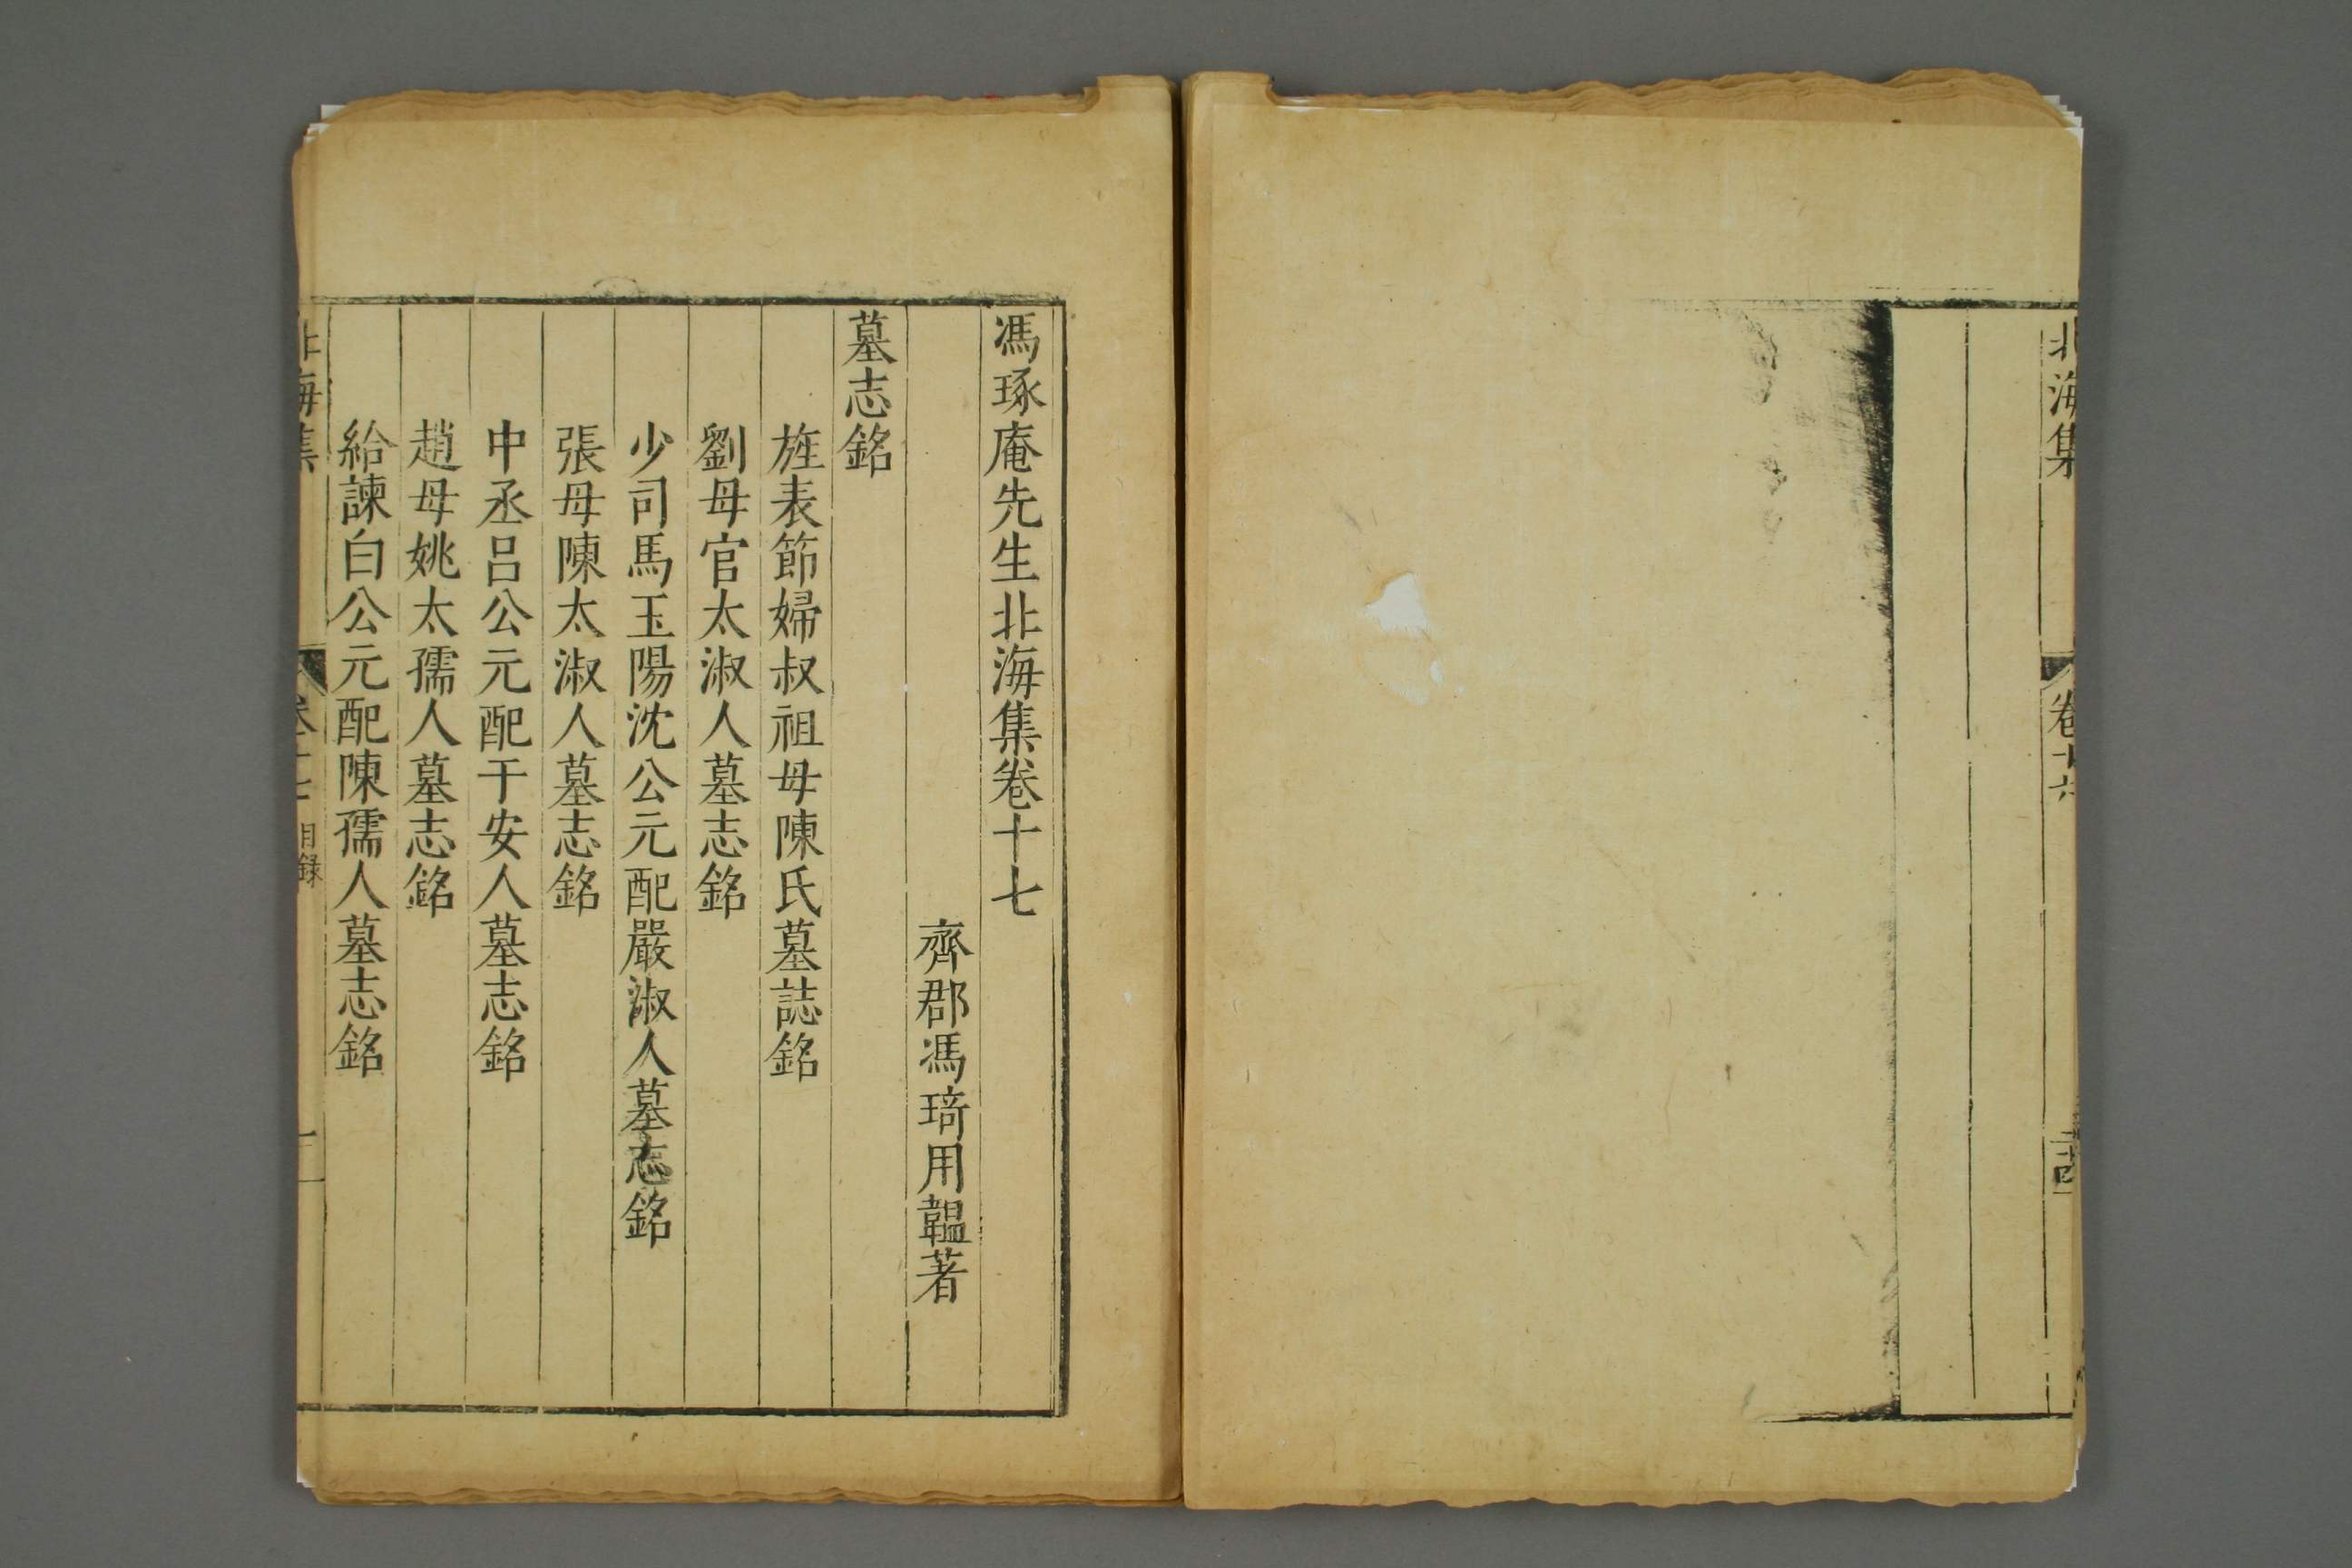 北海集
卷十六
馮琢庵先生北海集卷十七
齊郡馮琦用韞著
墓志銘
旌表節婦叔祖母陳氏墓誌銘
劉母官太淑人墓志銘
少司馬玉陽沈公元配嚴淑人墓志銘
張母陳太淑人墓志銘
中丞呂公元配于安人墓志銘
趙母姚太孺人墓志銘
給諫白公元配陳孺人墓志銘
北海集
卷十七
目錄
一